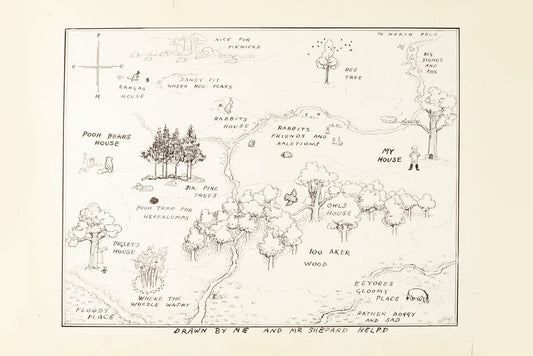 P
C C
H
NICE FOR
PIKNICKS
TO NORTH POLE
BIG
STONES
AND
ROX
BEE
TREE
KANGAS
HOUSE
SANDY PIT
WHERE ROO PLAYS
RABBITS
HOUSE
RABBITS
FRIENDS AND
RALETIONS
POOH BEARS
HOUSE
MY
HOUSE
SIX PINE
TREES
POOH TRAP FOR
HEFFALUMPS
OWLS
HOUSE
PIGLETS
HOUSE
100 AKER
WOOD
WHERE THE
WOOZLE WASNT
EEYORES
GLOOMY
PLACE
FLOODY
PLACE
RATHER BOGGY
AND SAD
DRAWN BY ME AND MR SHEPARD HELPD